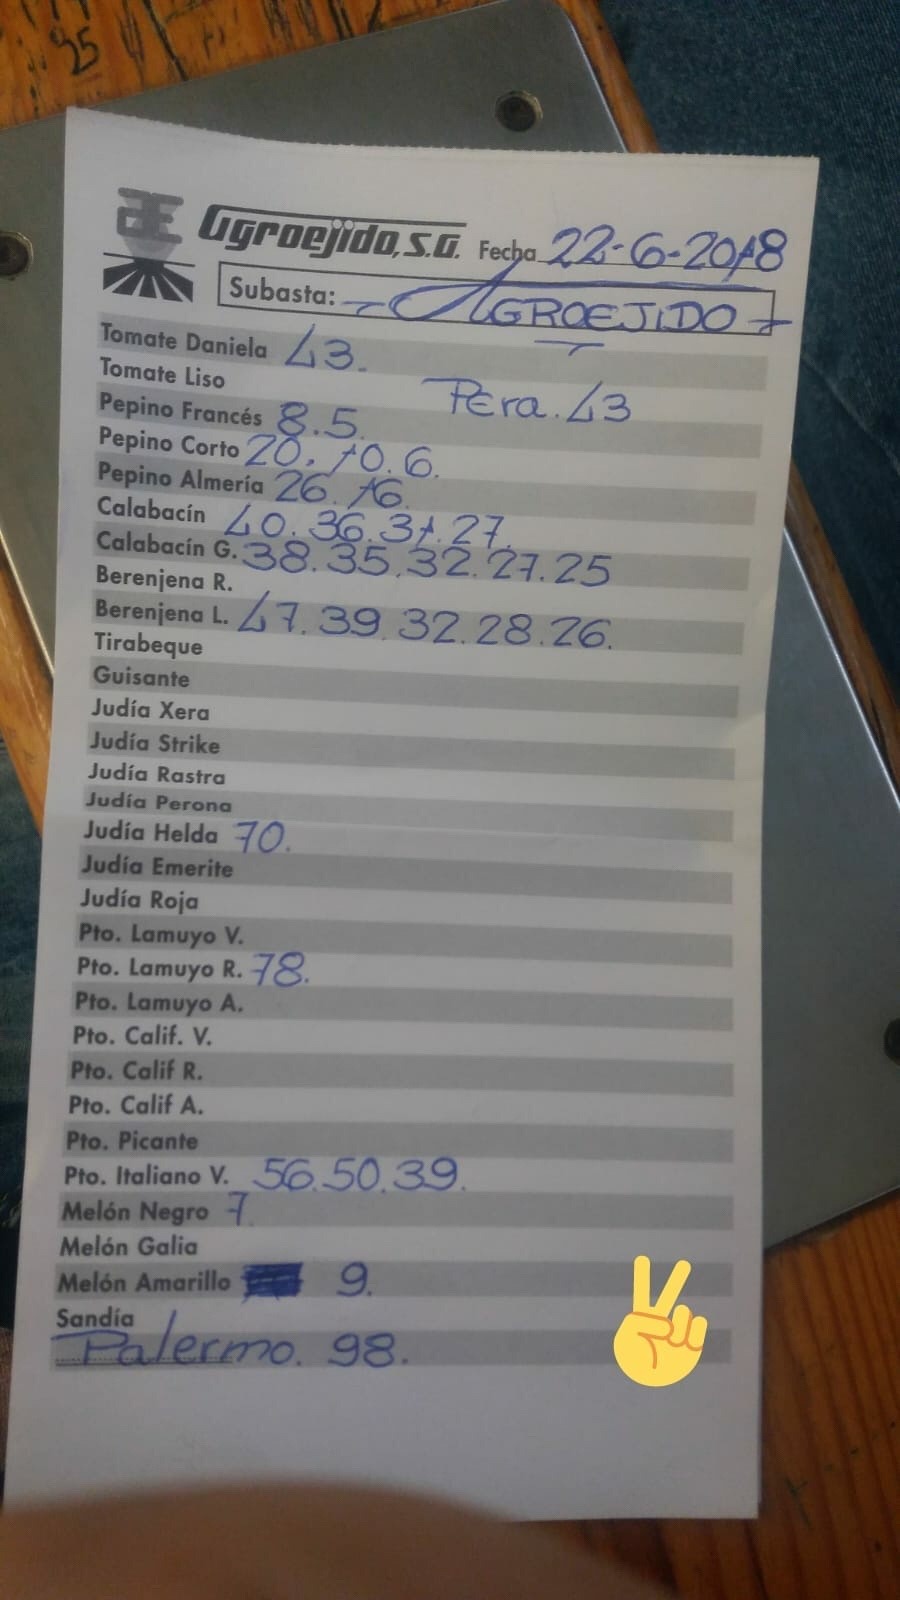 25
Agroejido, S.A. Fecha 22-6-2018
Subasta: - AGROEJIDO -
Tomate Daniela 43.
Tomate Liso Pera. 43
Pepino Francés 8.5.
Pepino Corto 20. 10. 6.
Pepino Almería 26. 16.
Calabacín 40. 36. 31. 27.
Calabacín G. 38. 35. 32. 27. 25
Berenjena R.
Berenjena L. 47. 39. 32. 28. 26.
Tirabeque
Guisante
Judía Xera
Judía Strike
Judía Rastra
Judía Perona
Judía Helda 70.
Judía Emerite
Judía Roja
Pto. Lamuyo V.
Pto. Lamuyo R. 78.
Pto. Lamuyo A.
Pto. Calif. V.
Pto. Calif R.
Pto. Calif A.
Pto. Picante
Pto. Italiano V. 56. 50. 39.
Melón Negro 7.
Melón Galia
Melón Amarillo 9.
Sandía
Palermo. 98.